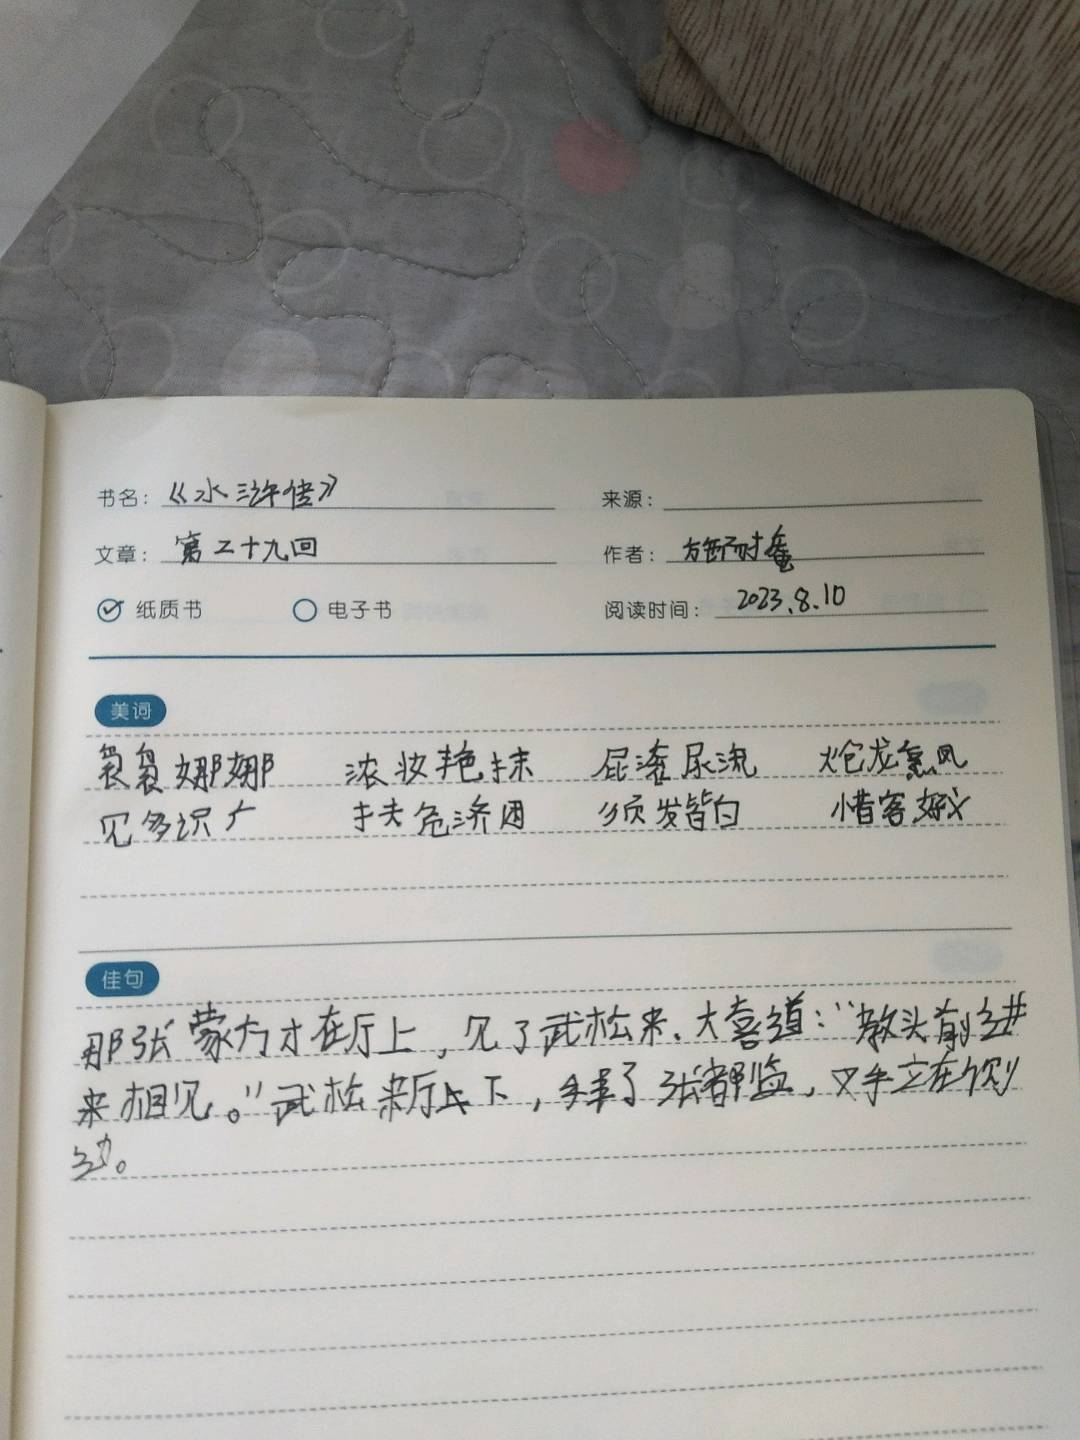 书名：《水浒传》 来源：
文章：第二十九回 作者：施耐庵
纸质书 电子书 阅读时间：2023.8.10
美词
袅袅娜娜 浓妆艳抹 屁滚尿流 炮龙烹凤
见多识广 扶危济困 须发皆白 惜客好义
佳句
那张蒙方才在厅上，见了武松来、大喜道：“教头前进
来相见。”武松来厅上下，拜了张都监，叉手立在侧
边。